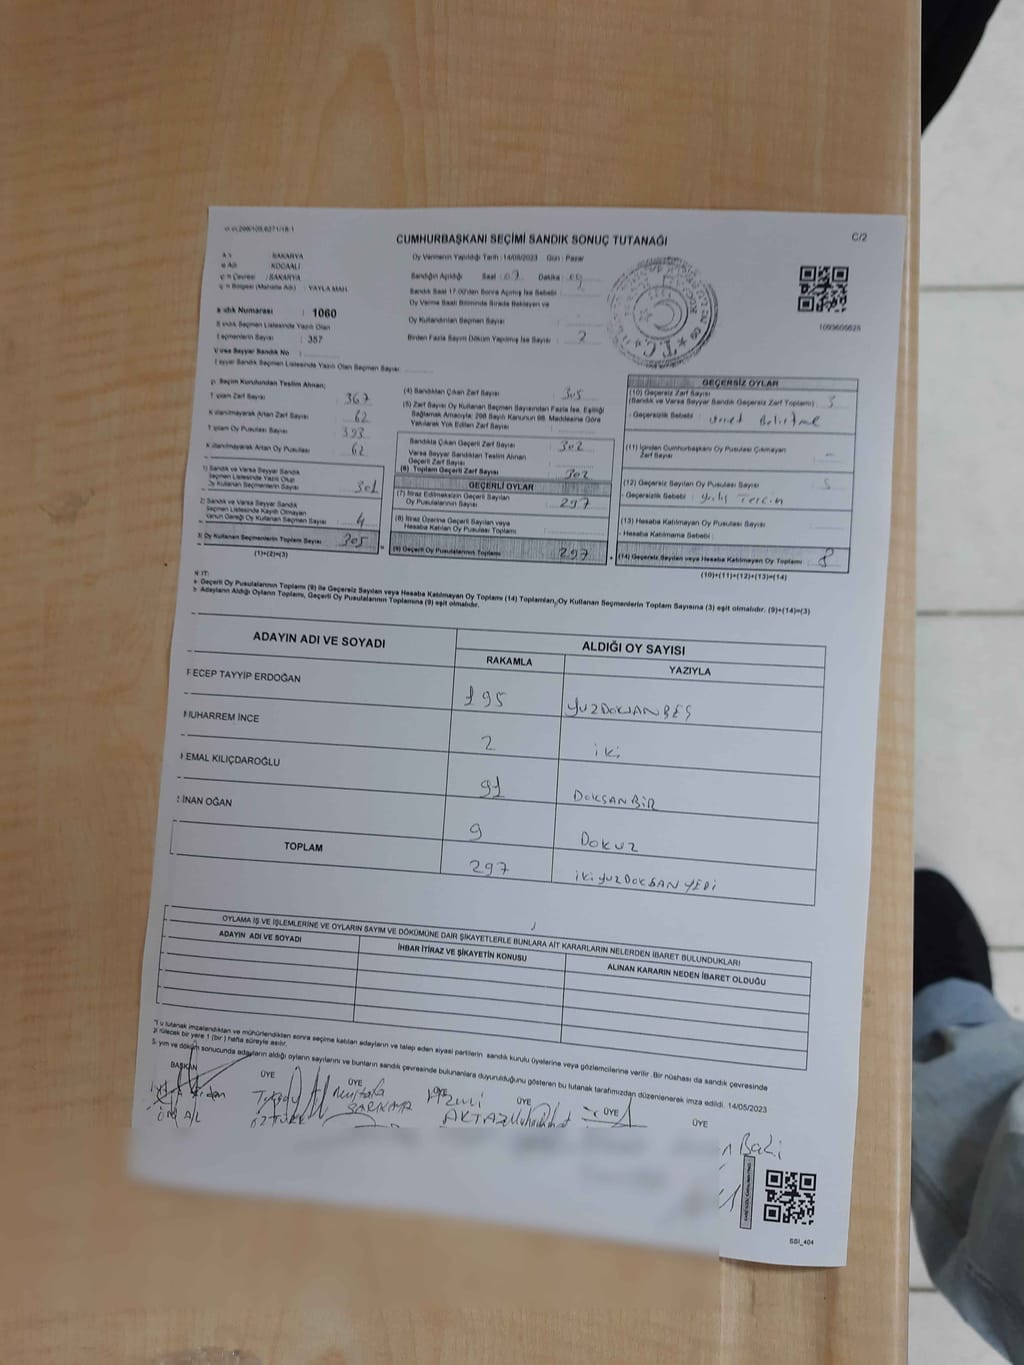 CUMHURBAŞKANI SEÇİMİ SANDIK SONUÇ TUTANAĞI
C/2
SAKARYA
KOCAALİ
SAKARYA
YAYLA MAH.
1060
357
Oy Vermenin Yapıldığı Tarih : 14/05/2023 Gün : Pazar
Sandığın Açıldığı Saat : Dakika :
Sandık Saat 17:00'den Sonra Açılmış İse Sebebi
Oy Verme Saati Bitiminde Sırada Bekleyen ve
Oy Kullandırılan Seçmen Sayısı
Birden Fazla Sayım Döküm Yapılmış İse Sayısı : 2
1093605625
367
62
393
Kullanılmayarak Artan Oy Pusulası 62
1) Sandık ve Varsa Seyyar Sandık
Seçmen Listesinde Yazılı Olup
Oy Kullanan Seçmenlerin Sayısı 301
2) Sandık ve Varsa Seyyar Sandık
Seçmen Listesinde Kayıtlı Olmayan
Kanun Gereği Oy Kullanan Seçmen Sayısı 4
3) Oy Kullanan Seçmenlerin Toplam Sayısı 305
(1)+(2)=(3)
(4) Sandıktan Çıkan Zarf Sayısı 305
(5) Zarf Sayısı Oy Kullanan Seçmen Sayısından Fazla İse, Eşitliği
Sağlamak Amacıyla; 298 Sayılı Kanunun 98. Maddesine Göre
Yakılarak Yok Edilen Zarf Sayısı
Sandıkta Çıkan Geçerli Zarf Sayısı 302
Varsa Seyyar Sandıktan Teslim Alınan
Geçerli Zarf Sayısı
(6) Toplam Geçerli Zarf Sayısı 302
GEÇERLİ OYLAR
(7) İtiraz Edilmeksizin Geçerli Sayılan
Oy Pusulalarının Sayısı 297
(8) İtiraz Üzerine Geçerli Sayılan veya
Hesaba Katılan Oy Pusulası Toplamı
(9) Geçerli Oy Pusulalarının Toplamı 297
GEÇERSİZ OYLAR
(10) Geçersiz Zarf Sayısı
(Sandık ve Varsa Seyyar Sandık Geçersiz Zarf Toplamı) 3
- Geçersizlik Sebebi :
(11) İçinden Cumhurbaşkanı Oy Pusulası Çıkmayan
Zarf Sayısı
(12) Geçersiz Sayılan Oy Pusulası Sayısı 5
- Geçersizlik Sebebi :
(13) Hesaba Katılmayan Oy Pusulası Sayısı
- Hesaba Katılmama Sebebi :
(14) Geçersiz Sayılan veya Hesaba Katılmayan Oy Toplamı 8
(10)+(11)+(12)+(13)=(14)
Geçerli Oy Pusulalarının Toplamı (9) ile Geçersiz Sayılan veya Hesaba Katılmayan Oy Toplamı (14) Toplamları, Oy Kullanan Seçmenlerin Toplam Sayısına (3) eşit olmalıdır. (9)+(14)=(3)
Adayların Aldığı Oyların Toplamı, Geçerli Oy Pusulalarının Toplamına (9) eşit olmalıdır.
ADAYIN ADI VE SOYADI ALDIĞI OY SAYISI
RAKAMLA YAZIYLA
ECEP TAYYİP ERDOĞAN 195 YÜZDOKSANBEŞ
UHARREM İNCE 2 iki
EMAL KILIÇDAROĞLU 91 DOKSANBİR
İNAN OĞAN 9 DOKUZ
TOPLAM 297 İKİYÜZDOKSANYEDİ
OYLAMA İŞ VE İŞLEMLERİNE VE OYLARIN SAYIM VE DÖKÜMÜNE DAİR ŞİKAYETLERLE BUNLARA AİT KARARLARIN NELERDEN İBARET BULUNDUKLARI
ADAYIN ADI VE SOYADI İHBAR İTİRAZ VE ŞİKAYETİN KONUSU ALINAN KARARIN NEDEN İBARET OLDUĞU
tutanak imzalandıktan ve mühürlendikten sonra seçime katılan adayların ve talep eden siyasi partilerin sandık kurulu üyelerine veya gözlemcilerine verilir. Bir nüshası da sandık çevresinde
bir yere 1 (bir) hafta süreyle asılır.
ve döküm sonucunda adayların aldığı oyların sayılarını ve bunların sandık çevresinde bulunanlara duyurulduğunu gösteren bu tutanak tarafımızdan düzenlenerek imza edildi. 14/05/2023
BAŞKAN ÜYE ÜYE ÜYE ÜYE ÜYE ÜYE
Baki
SSI_404